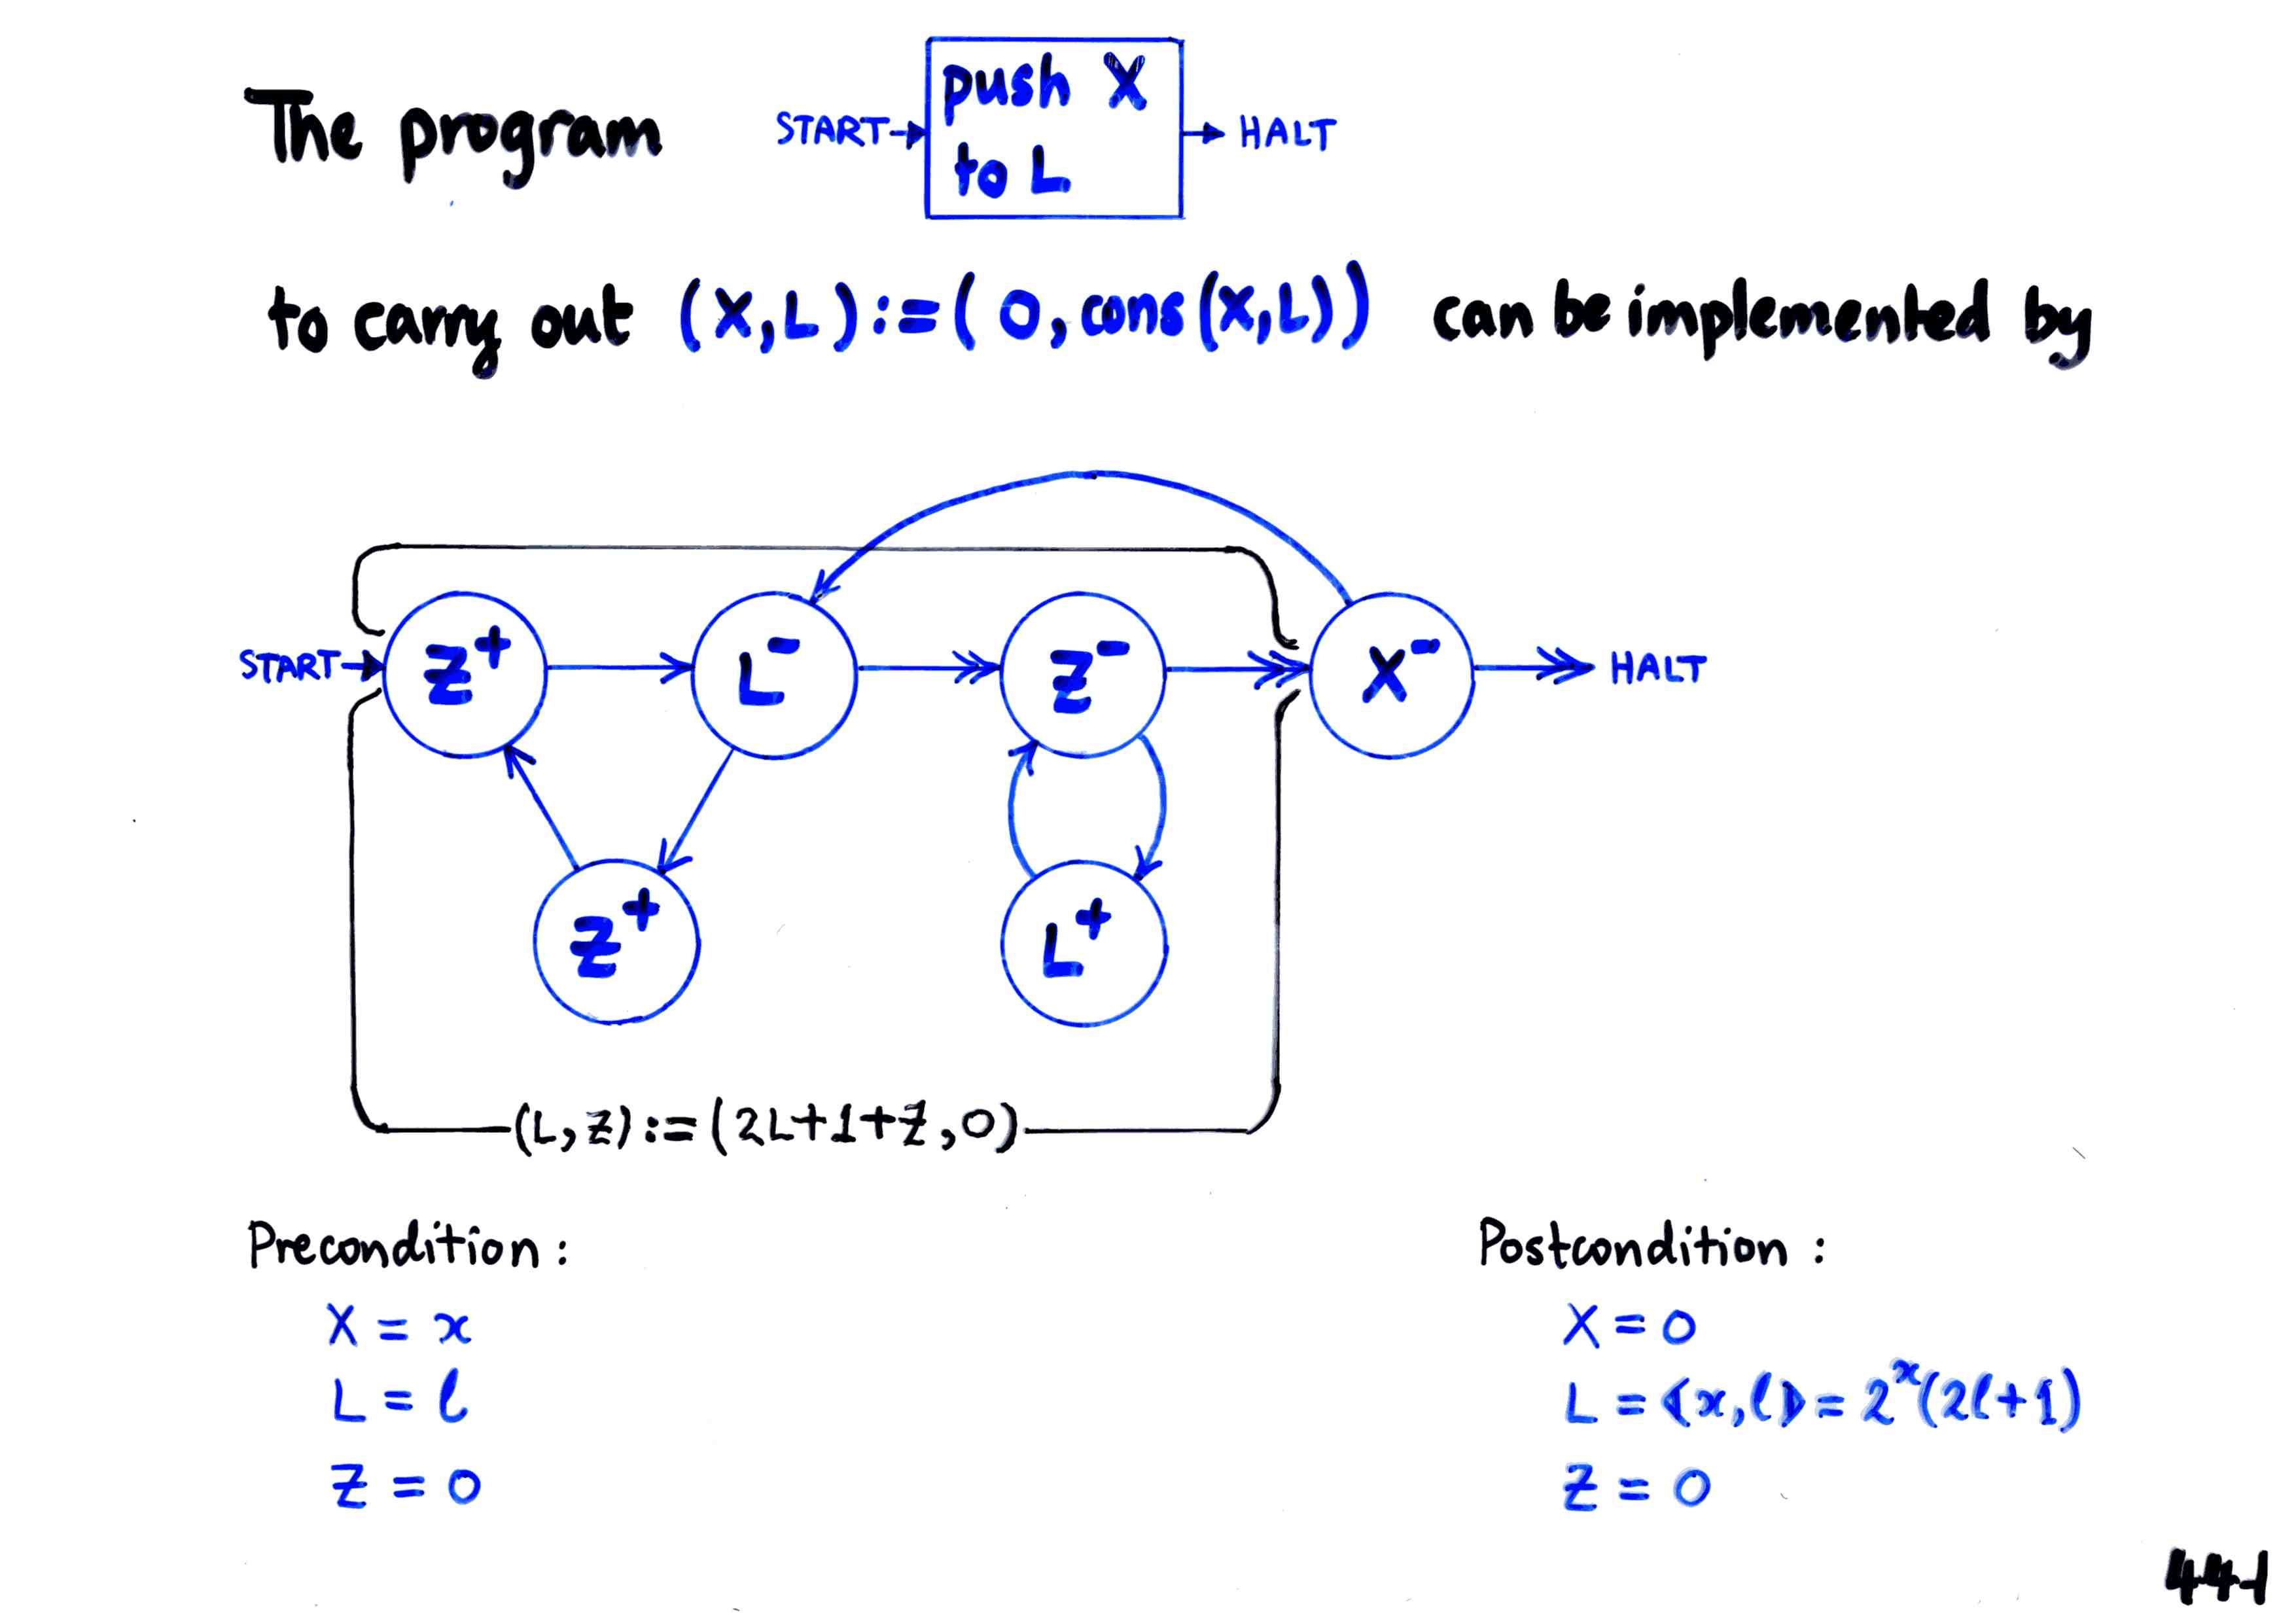 The program START push X to L HALT
to carry out (X,L):=(0,cons(X,L)) can be implemented by
START Z⁺ L⁻ Z⁻ X⁻ HALT
Z⁺ L⁺
(L,Z):=(2L+1+Z,0)
Precondition: Postcondition:
X = x X = 0
L = ℓ L = ⟪x,ℓ⟫ = 2ˣ(2ℓ+1)
Z = 0 Z = 0